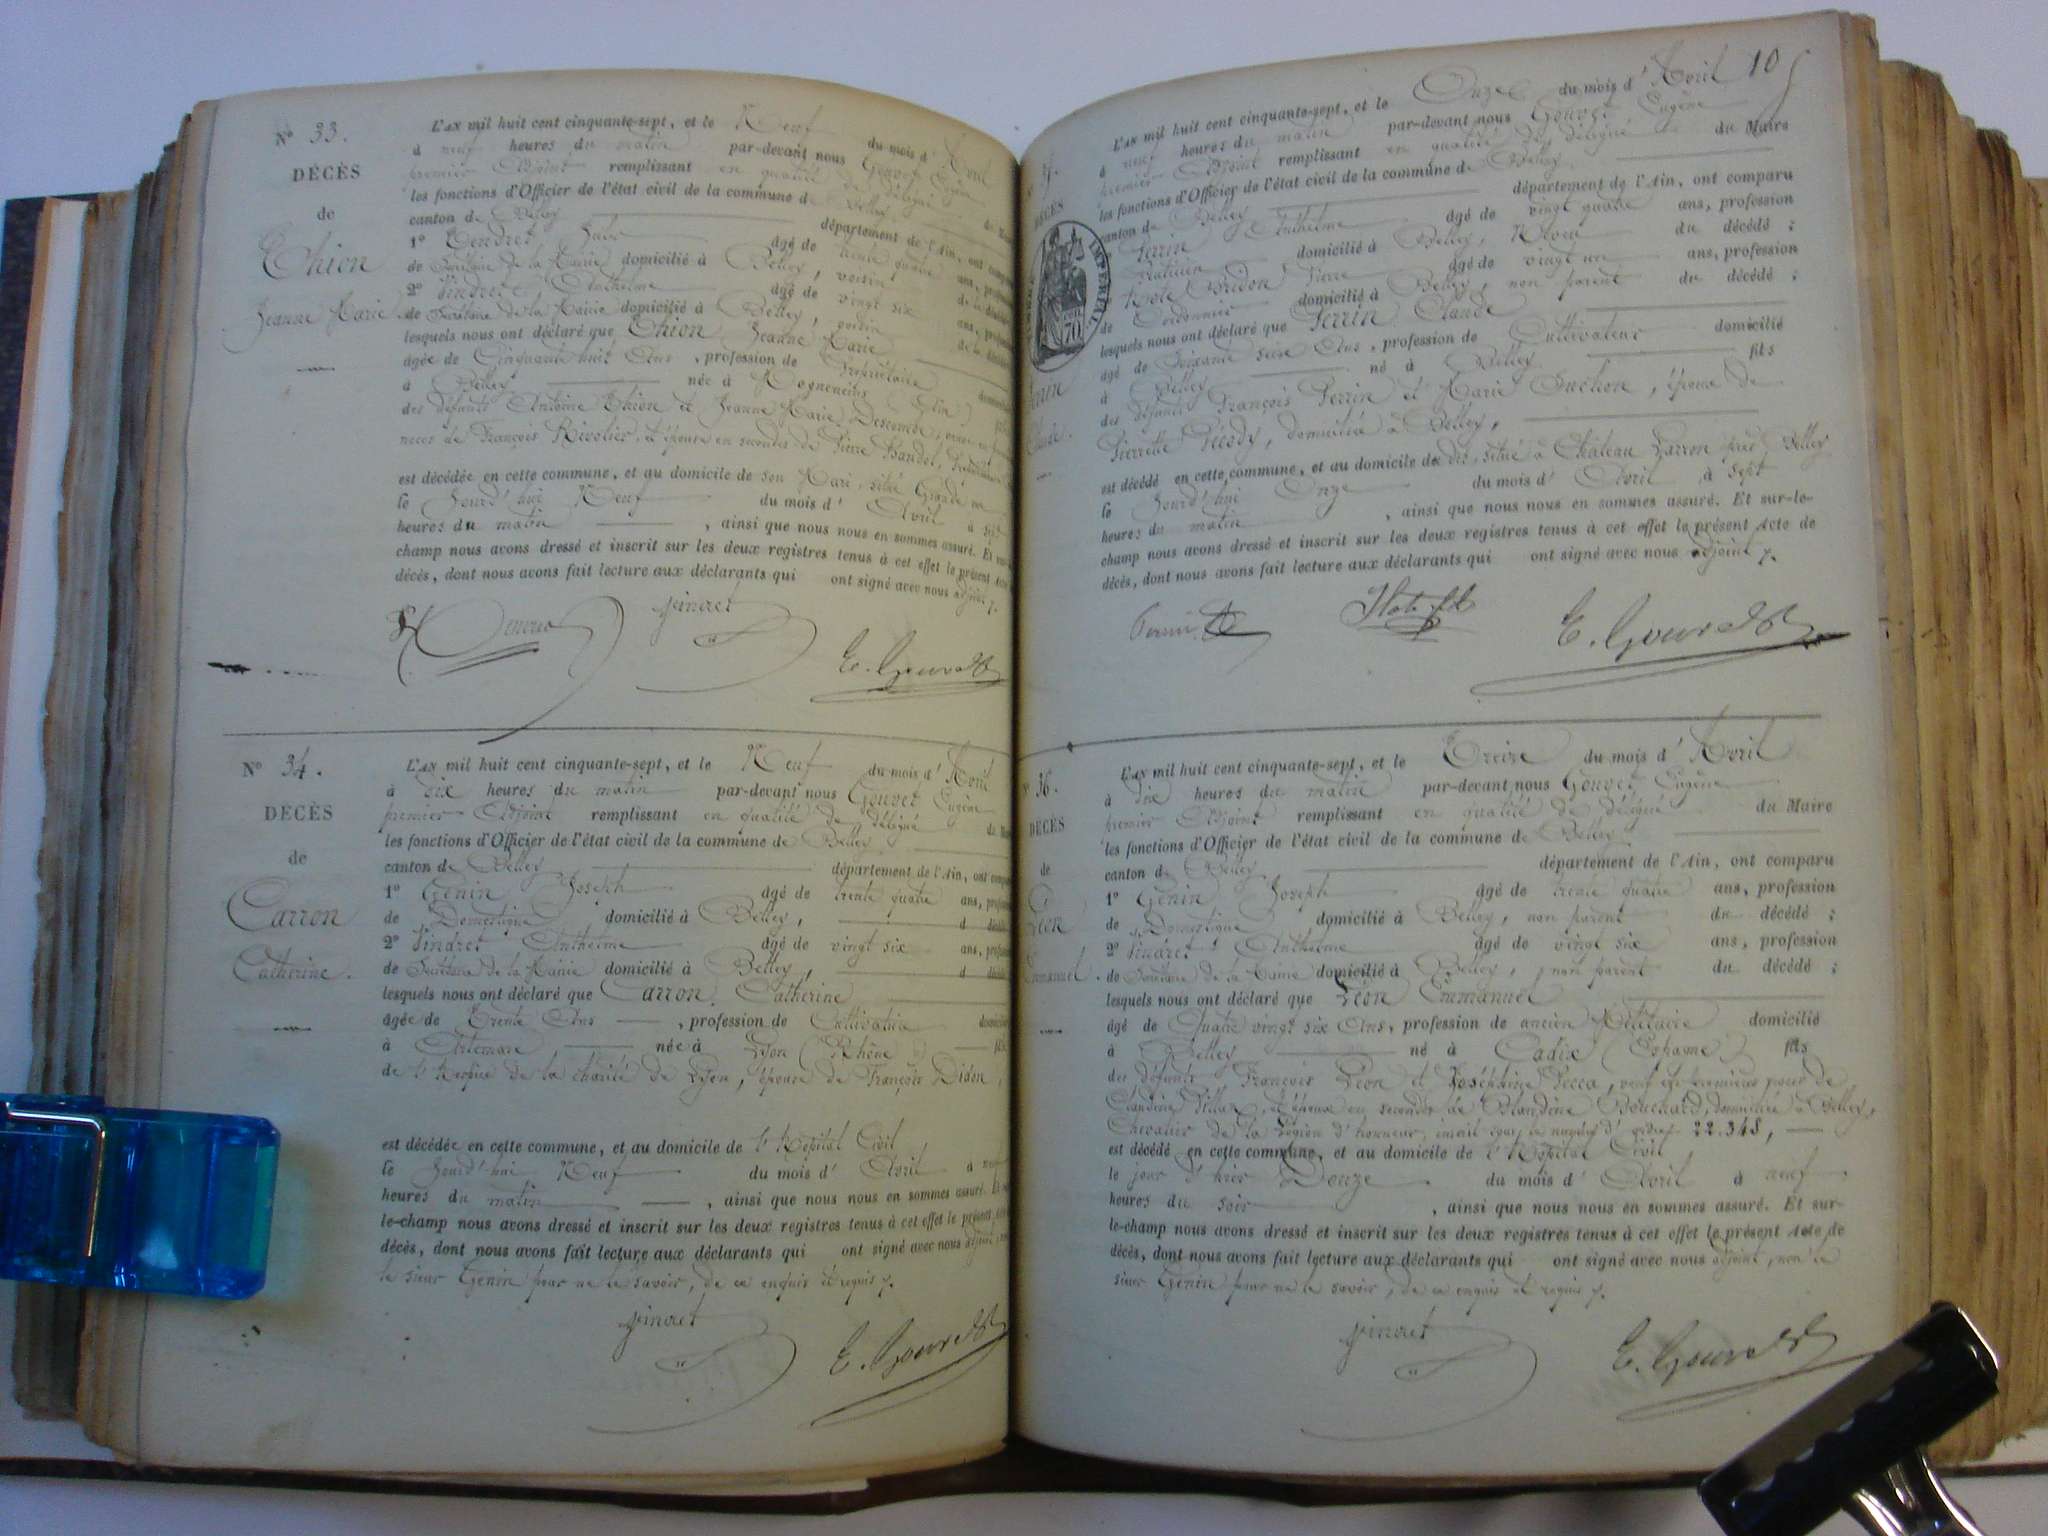 N° 33.
DÉCÈS
de
Thion
Jeanne Marie
L'AN mil huit cent cinquante-sept, et le Neuf du mois d'Avril
à neuf heures du matin par-devant nous Gouvet Eugène
premier Adjoint remplissant en qualité de délégué du Maire
les fonctions d'Officier de l'état civil de la commune de Belley
canton de Belley département de l'Ain, ont comparu
1° Tendret âgé de trente quatre ans, profession
de Secrétaire de la Mairie domicilié à Belley, voisin de la décédée
2° Vindret Anthelme âgé de vingt six ans, profession
de Secrétaire de la Mairie domicilié à Belley, voisin de la décédée
lesquels nous ont déclaré que Thion Jeanne Marie
agée de Cinquante huit Ans, profession de Propriétaire domiciliée
à Belley née à Mogneneins (Ain) fille
des défunts Antoine Thion et Jeanne Marie Descombe, veuve en premières
noces de François Rivolier, et épouse en secondes de Pierre Baudet,
est décédée en cette commune, et au domicile de son Mari, situé Grande rue
le Jourd'hui Neuf du mois d'Avril à sept
heures du matin, ainsi que nous nous en sommes assuré. Et sur-le-
champ nous avons dressé et inscrit sur les deux registres tenus à cet effet le présent Acte de
décès, dont nous avons fait lecture aux déclarants qui ont signé avec nous adjoint
Vindret
E. Gouvet
N° 34.
DÉCÈS
de
Carron
Catherine.
L'AN mil huit cent cinquante-sept, et le Neuf du mois d'Avril
à dix heures du matin par-devant nous Gouvet Eugène
premier Adjoint remplissant en qualité de délégué du Maire
les fonctions d'Officier de l'état civil de la commune de Belley
canton de Belley département de l'Ain, ont comparu
1° Genin Joseph âgé de trente quatre ans, profession
de Domestique domicilié à Belley, d décédée
2° Vindret Anthelme âgé de vingt six ans, profession
de Secrétaire de la Mairie domicilié à Belley, d décédée
lesquels nous ont déclaré que Carron Catherine
âgée de Trente Ans, profession de Cultivatrice domiciliée
à Artemare née à Lyon (Rhône) fille
de l'hospice de la charité de Lyon, épouse de François Didon,
est décédée en cette commune, et au domicile de l'Hôpital Civil
le Jourd'hui Neuf du mois d'Avril à neuf
heures du matin, ainsi que nous nous en sommes assuré. Et sur-
le-champ nous avons dressé et inscrit sur les deux registres tenus à cet effet le présent Acte de
décès, dont nous avons fait lecture aux déclarants qui ont signé avec nous adjoint, non
le sieur Genin pour ne le savoir, de ce enquis et requis
Vindret
E. Gouvet
10
DÉCÈS
IMPÉRIAL
70
Perrin
Claude.
L'AN mil huit cent cinquante-sept, et le Onze du mois d'Avril
à neuf heures du matin par-devant nous Gouvet Eugène
premier Adjoint remplissant en qualité de délégué du Maire
les fonctions d'Officier de l'état civil de la commune de Belley
canton de Belley département de l'Ain, ont comparu
Perrin Anthelme âgé de vingt quatre ans, profession
Praticien domicilié à Belley, Neveu du décédé ;
Bridon Pierre âgé de vingt un ans, profession
de Cordonnier domicilié à Belley, non parent du décédé ;
lesquels nous ont déclaré que Perrin Claude
agé de Soixante seize Ans, profession de Cultivateur domicilié
à Belley né à Belley fils
des défunts François Perrin et Marie Suchon, époux de
Pierrette Récody, domiciliée à Belley,
est décédé en cette commune, et au domicile de lui, situé à Château Larron près Belley
le Jourd'hui Onze du mois d'Avril, à Sept
heures du matin, ainsi que nous nous en sommes assuré. Et sur-le-
champ nous avons dressé et inscrit sur les deux registres tenus à cet effet le présent Acte de
décès, dont nous avons fait lecture aux déclarants qui ont signé avec nous adjoint
Perrin
E. Gouvet
N° 36.
DÉCÈS
de
Léon
Emmanuel.
L'AN mil huit cent cinquante-sept, et le Treize du mois d'Avril
à dix heures du matin par-devant nous Gouvet Eugène
premier Adjoint remplissant en qualité de délégué du Maire
les fonctions d'Officier de l'état civil de la commune de Belley
canton de Belley département de l'Ain, ont comparu
1° Genin Joseph âgé de trente quatre ans, profession
de Domestique domicilié à Belley, non parent du décédé ;
2° Vindret Anthelme âgé de vingt six ans, profession
de Secrétaire de la Mairie domicilié à Belley, non parent du décédé ;
lesquels nous ont déclaré que Léon Emmanuel
âgé de Quatre vingt six Ans, profession de ancien Militaire domicilié
à Belley né à Cadix (Espagne) fils
des défunts François Léon et Joséphine Lecca, veuf en premières noces de
Claudine Villaz, et époux en secondes de Blandine Bouchard, domiciliée à Belley,
Chevalier de la Légion d'honneur, inscrit sous le numéro d'ordre 22.348,
est décédé en cette commune, et au domicile de l'Hôpital Civil
le jour d'hier Douze du mois d'Avril à neuf
heures du soir, ainsi que nous nous en sommes assuré. Et sur-
le-champ nous avons dressé et inscrit sur les deux registres tenus à cet effet le présent Acte de
décès, dont nous avons fait lecture aux déclarants qui ont signé avec nous adjoint, non le
sieur Genin pour ne le savoir, de ce enquis et requis
Vindret
E. Gouvet